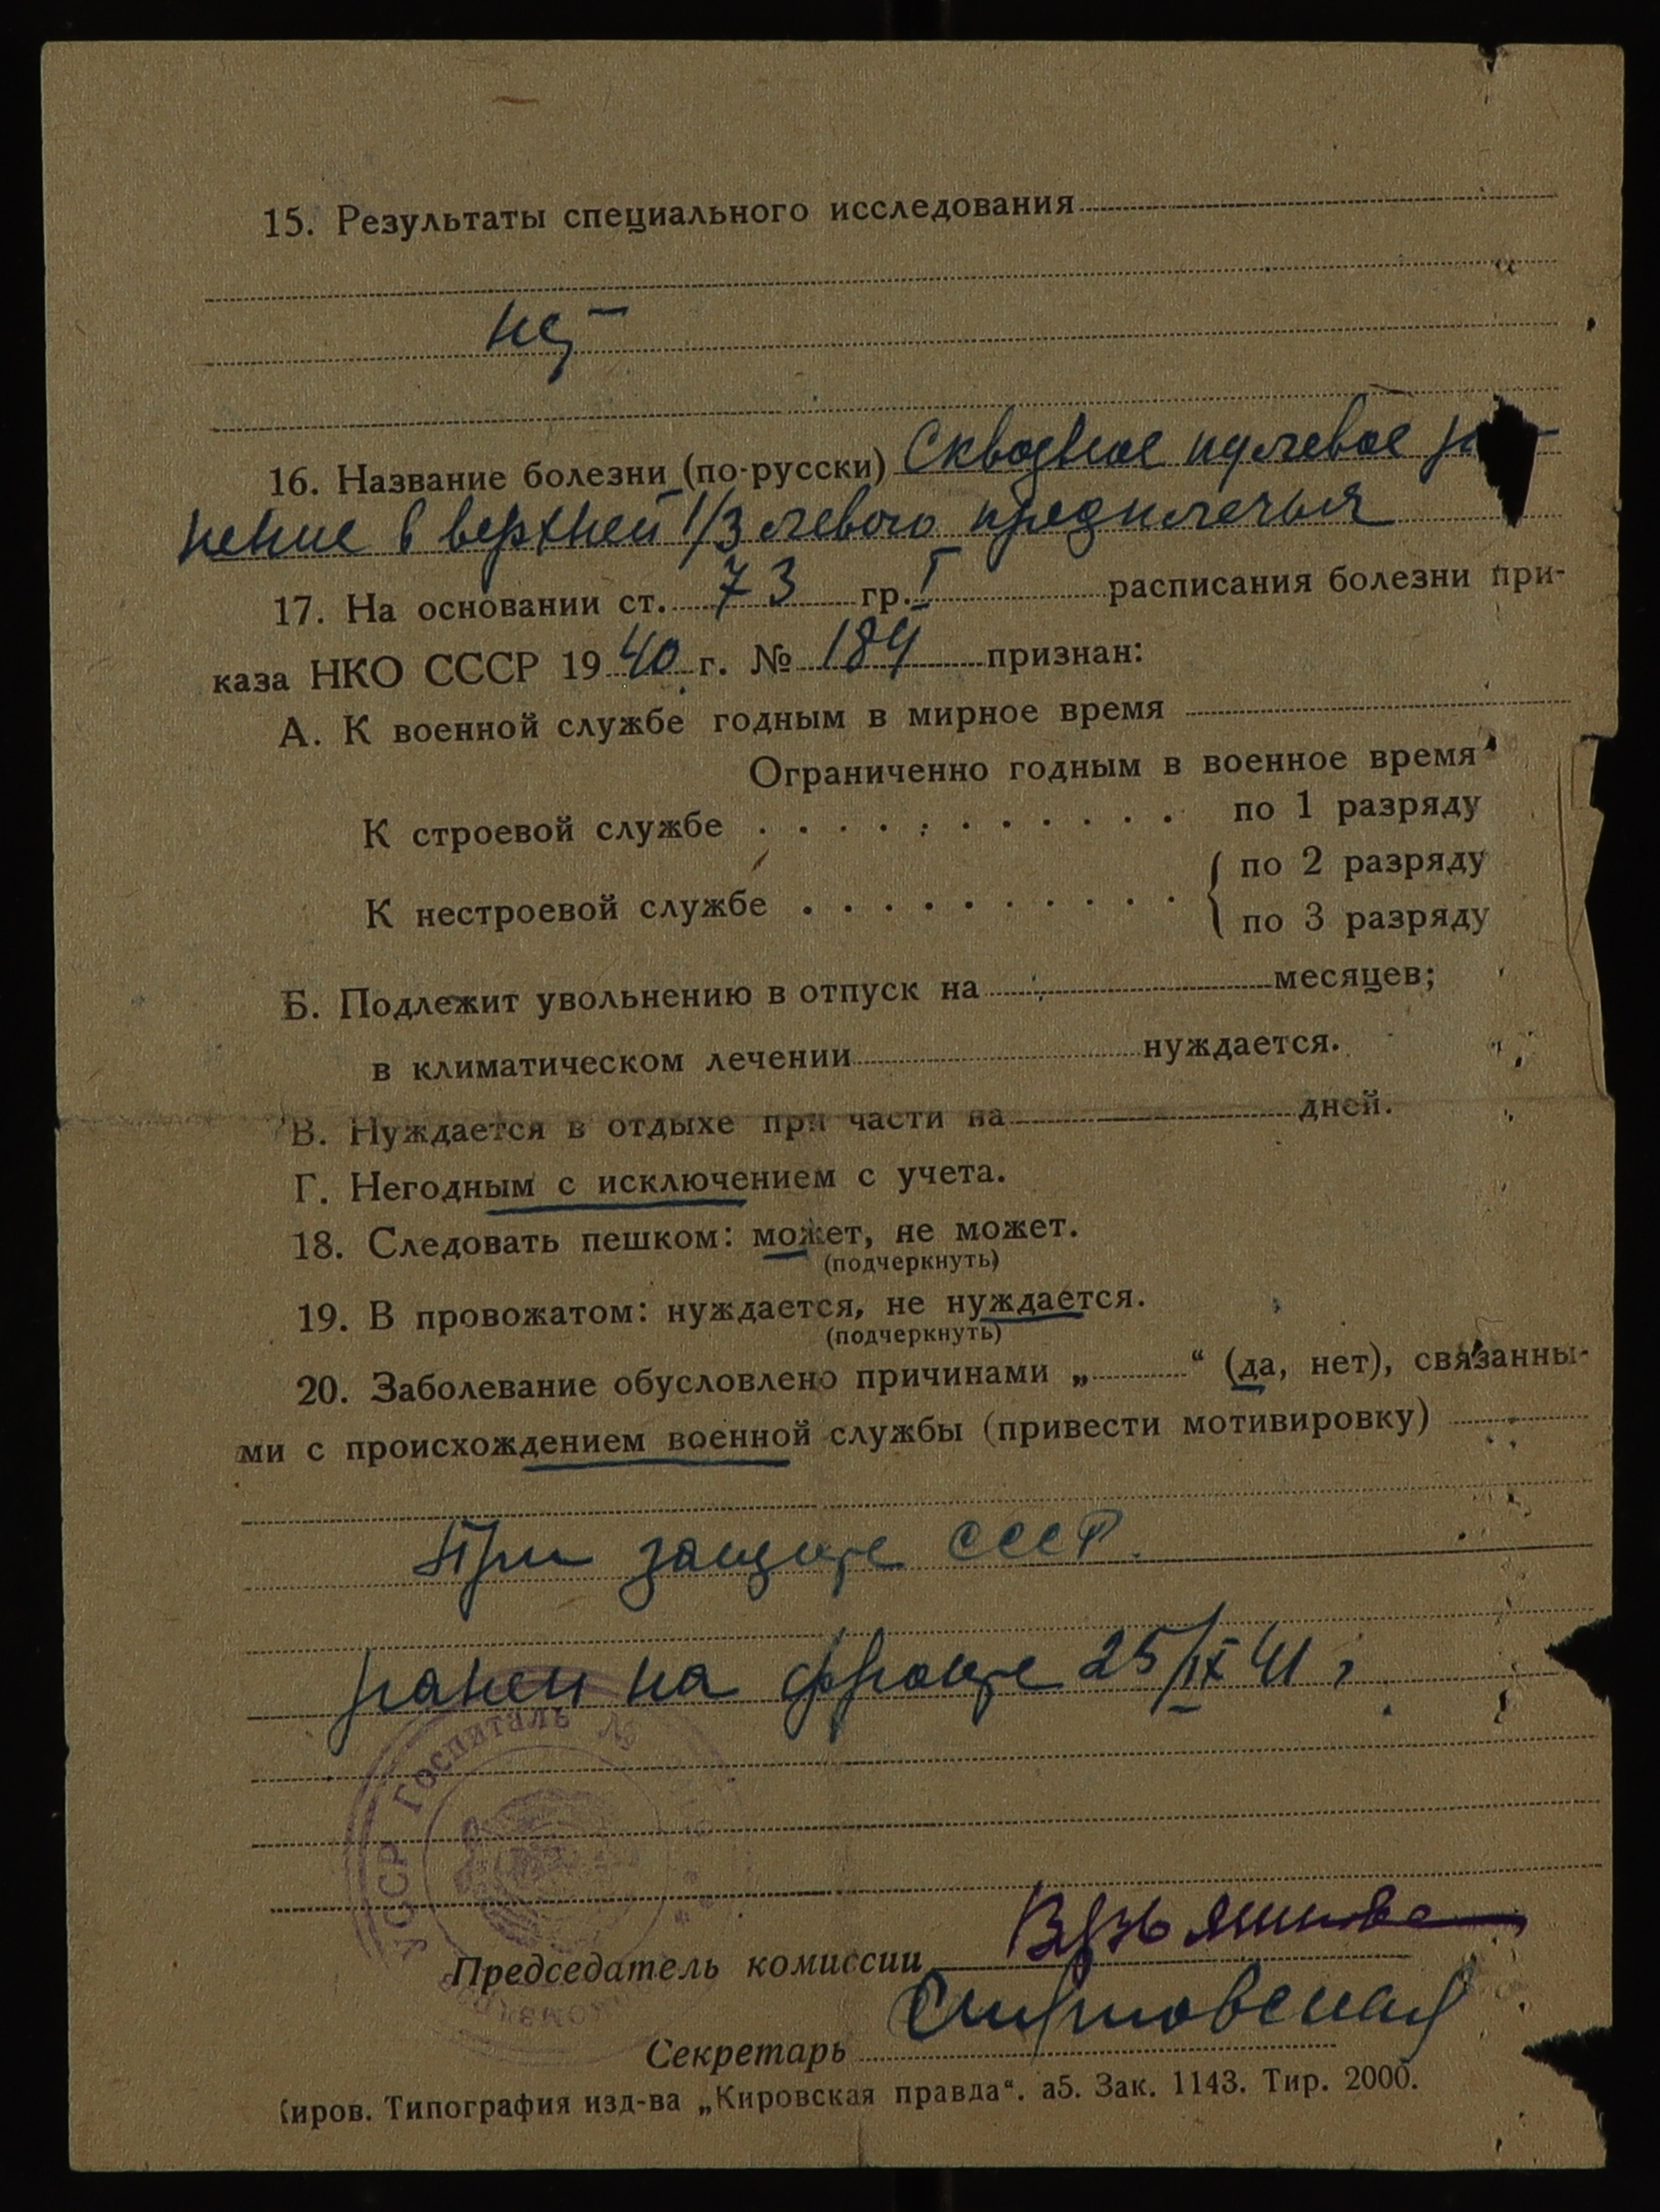 15. Результаты специального исследования
нет
16. Название болезни (по-русски) Сквозное пулевое
нение в верхней 1/3 левого предплечья
17. На основании ст. 73 гр. I расписания болезни при-
каза НКО СССР 1940 г. № 184 признан:
А. К военной службе годным в мирное время
Ограниченно годным в военное время
К строевой службе . . . . . . . . . . . по 1 разряду
по 2 разряду
К нестроевой службе . . . . . . . . . . {
по 3 разряду
Б. Подлежит увольнению в отпуск на месяцев;
в климатическом лечении нуждается.
В. Нуждается в отдыхе при части на дней.
Г. Негодным с исключением с учета.
18. Следовать пешком: может, не может.
(подчеркнуть)
19. В провожатом: нуждается, не нуждается.
(подчеркнуть)
20. Заболевание обусловлено причинами „ “ (да, нет), связанны-
ми с происхождением военной службы (привести мотивировку)
При защите СССР.
ранен на фронте 25/IX 41 г.
УССР Госпиталь №
Председатель комиссии
Секретарь
Киров. Типография изд-ва „Кировская правда“. а5. Зак. 1143. Тир. 2000.